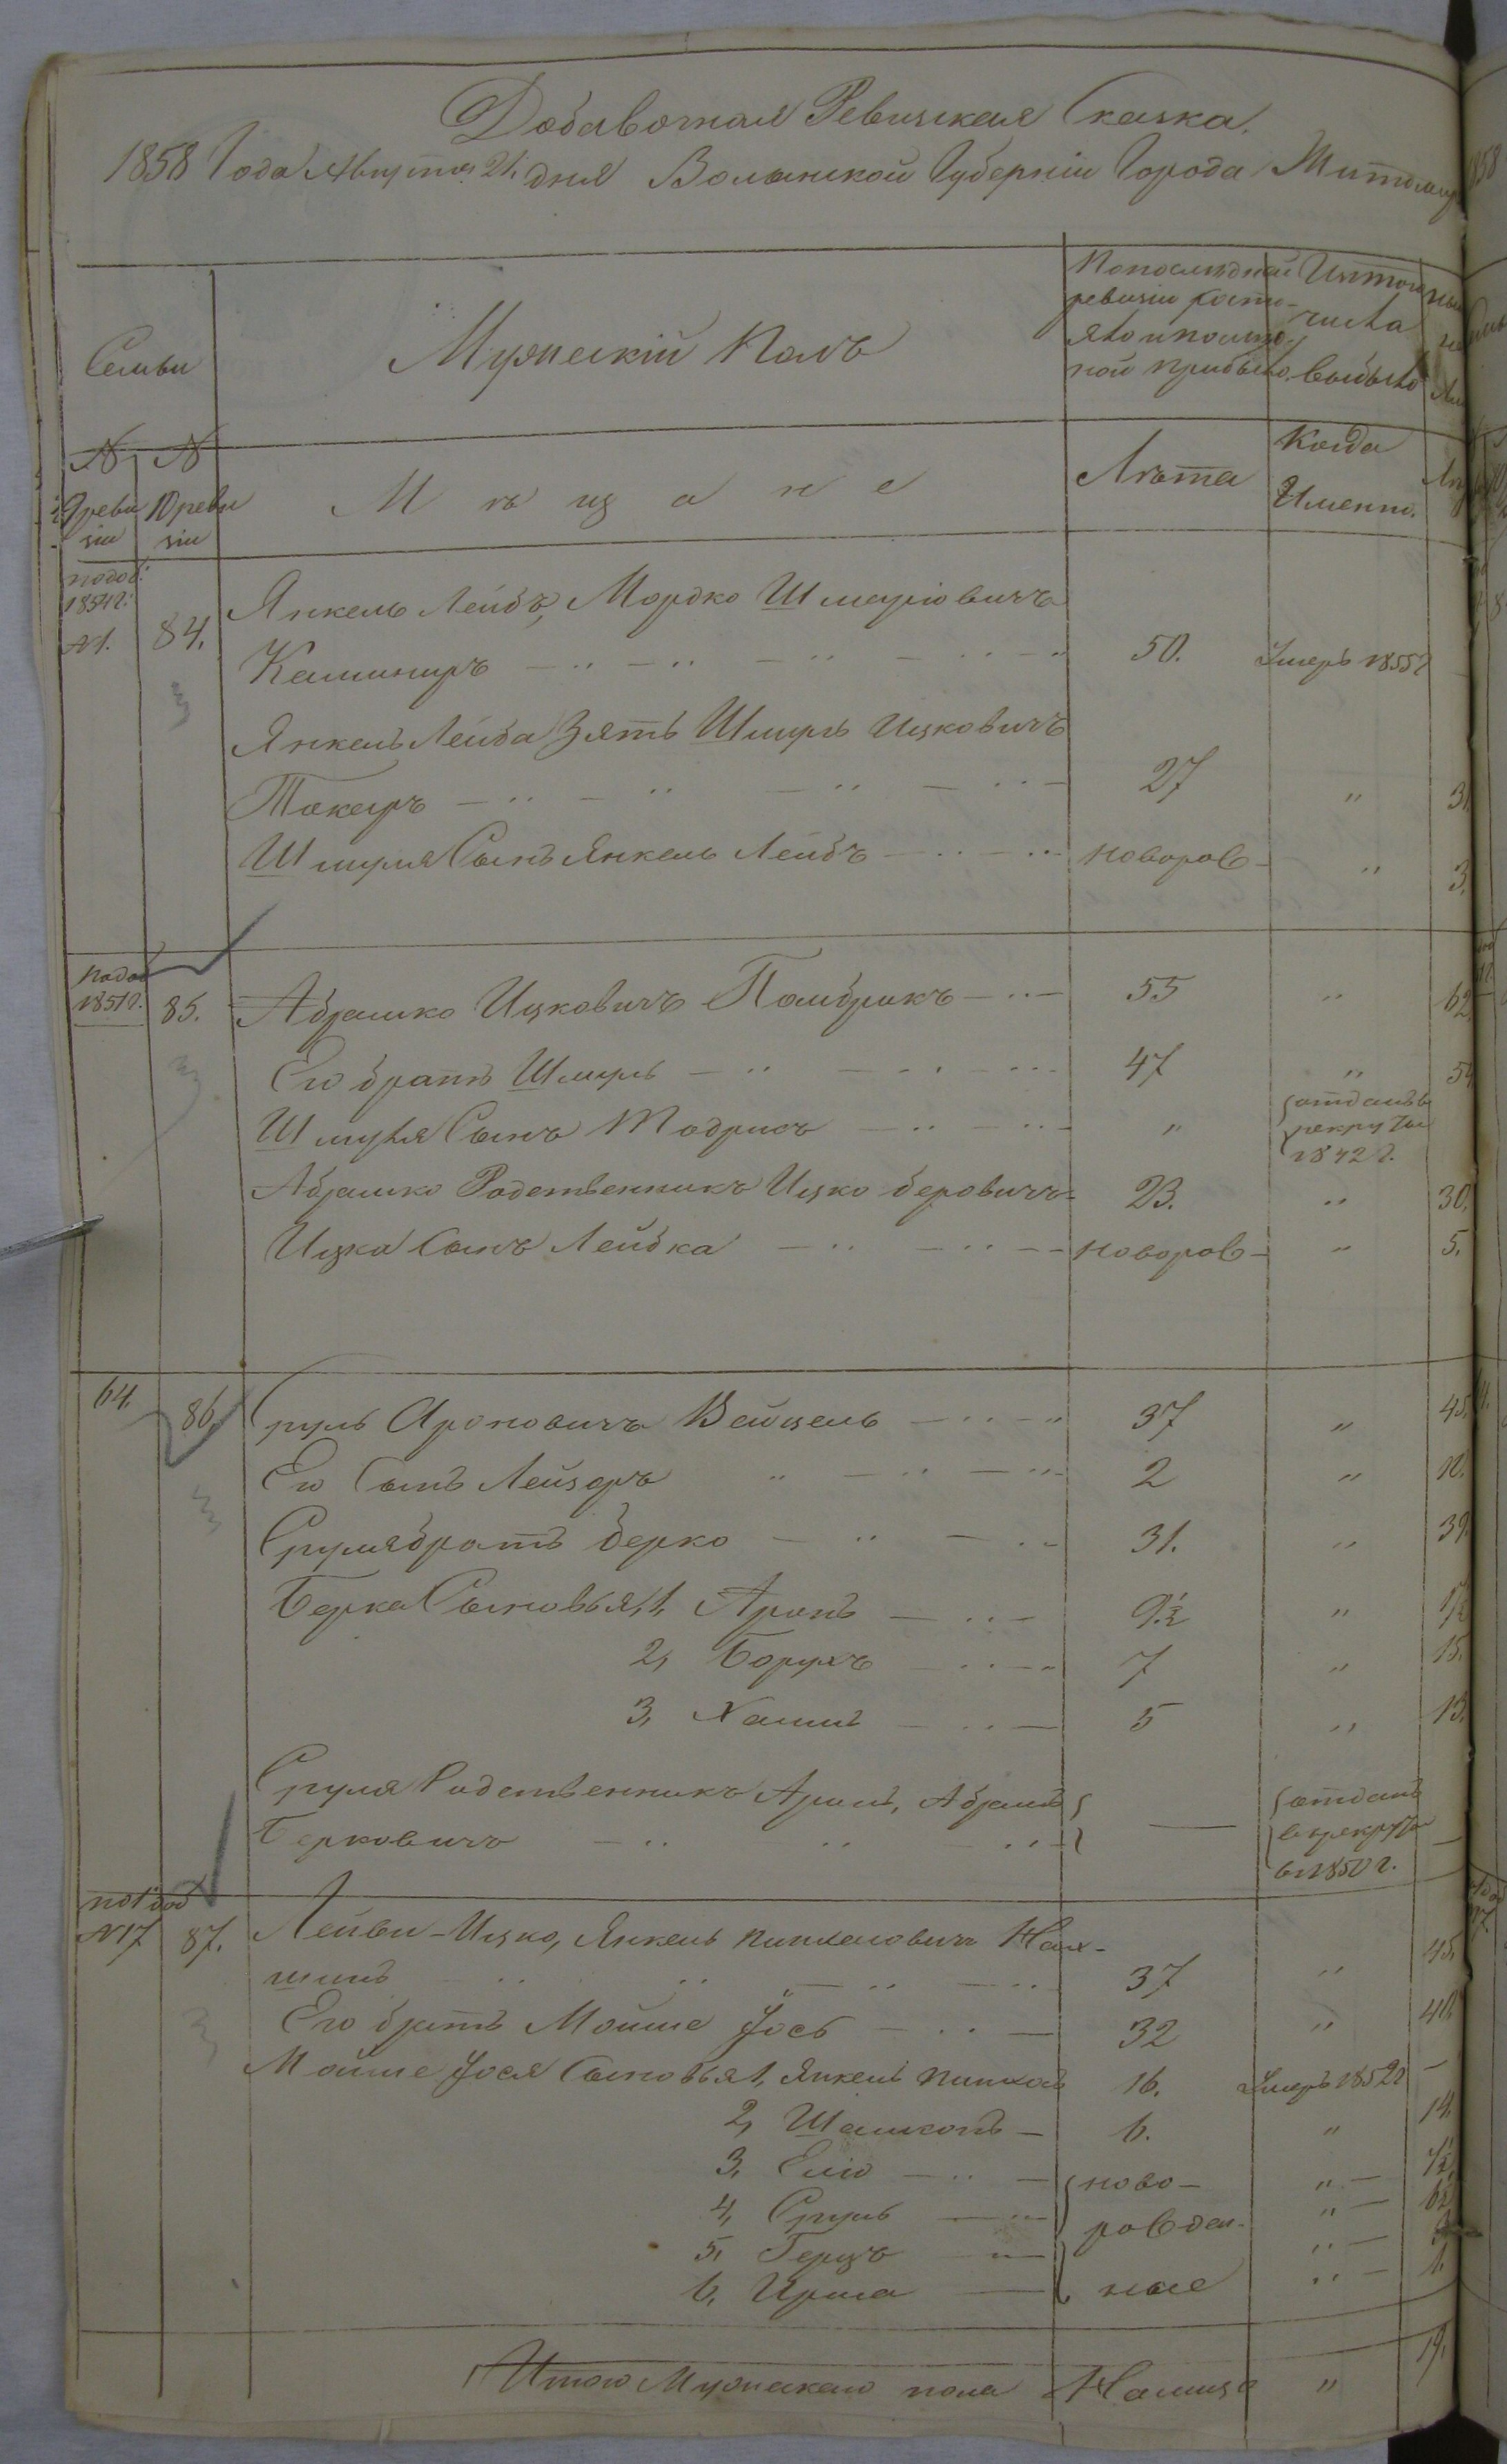 Добавочная Ревизская Сказка.
1858 Года Августа 21. дня Волынской Губерніи Города Житомир
Семьи
Мужескій Полъ
По последней ревизіи состояло и после оной прибыло.
Изтого числа выбыло
N 9 ревизіи
N 10 ревизіи
Мѣщане
Лѣта
Когда Именно.
по доб: 1854 г: N 1.
84.
Янкель Лейбъ, Мордко Шмаріовичъ
Камениръ 50. Умеръ 1855 г
Янкель Лейба Зять Шмуль Ицковичъ
Токаръ 27 " 31.
Шмуля Сынъ Янкель Лейбъ новорож " 3.
По доб 1851 г. 85. Абрамко Ицковичъ 55 " 62.
Его братъ Шмуль 47 " 54
Шмуля Сынъ Тодрисъ " отданъ в рекруты 1842 г.
Абрамко Родственникъ Ицко Беровичъ 23. " 30.
Ицка Сынъ Лейбка новорож " 5.
64. 86. Сруль Ароновичъ Вейцель 37 " 45.
Его Сынъ Лейзеръ 2 " 10.
Сруля братъ Берко 31. " 39
Берка Сыновья, 1, Аронъ 9½ "
2, Борухъ 7 " 15.
3, Хаимъ 5 " 13.
Сруля Родственникъ Аронъ, Абрамъ
Берковичъ — отданъ в рекруты в 1850 г.
по 1 доб N 17 87. Лейви-Ицко, Янкель Пинхасовичъ Нах-
шинъ 37 " 45.
Его братъ Мойше Іось 32 " 40.
Мойше Іося Сыновья 1, Янкель Пинхасъ 16. Умеръ 1852 г —
2, Шлемконъ 6. " 14.
3, Еліо ново- "
4, Сруль рожден- "
5, Герцъ "
6, Ирша ные " 1.
Итого Мужескаго пола Налицо " 19.